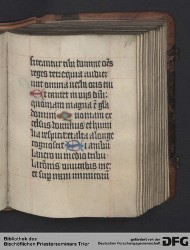 fiteantur tibi domine oēs
reges terre quia audier
unt omnia verba oris tui
Et cantent in viis dñi
quoniam magna ē glā
domini Quoniam ex
celsus dominus et humi
lia respicit et alta a longe
cognoscit Si ambu
lavero in medio tribu
lationis vivificabis me
et sup iram inimicorū
Bibliothek des
Bischöflichen Priesterseminars Trier
gefördert von der
Deutschen Forschungsgemeinschaft
DFG